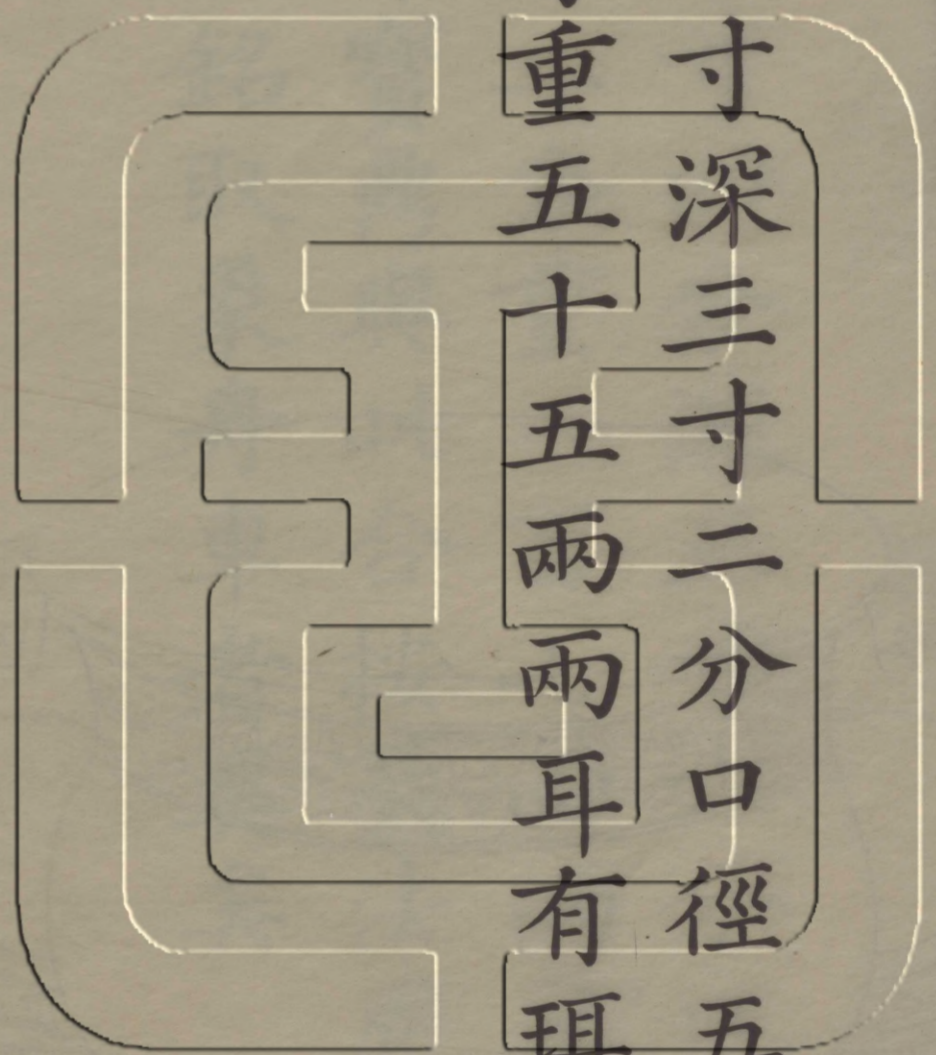 寸深三寸二分口徑五
重五十五兩兩耳有珥